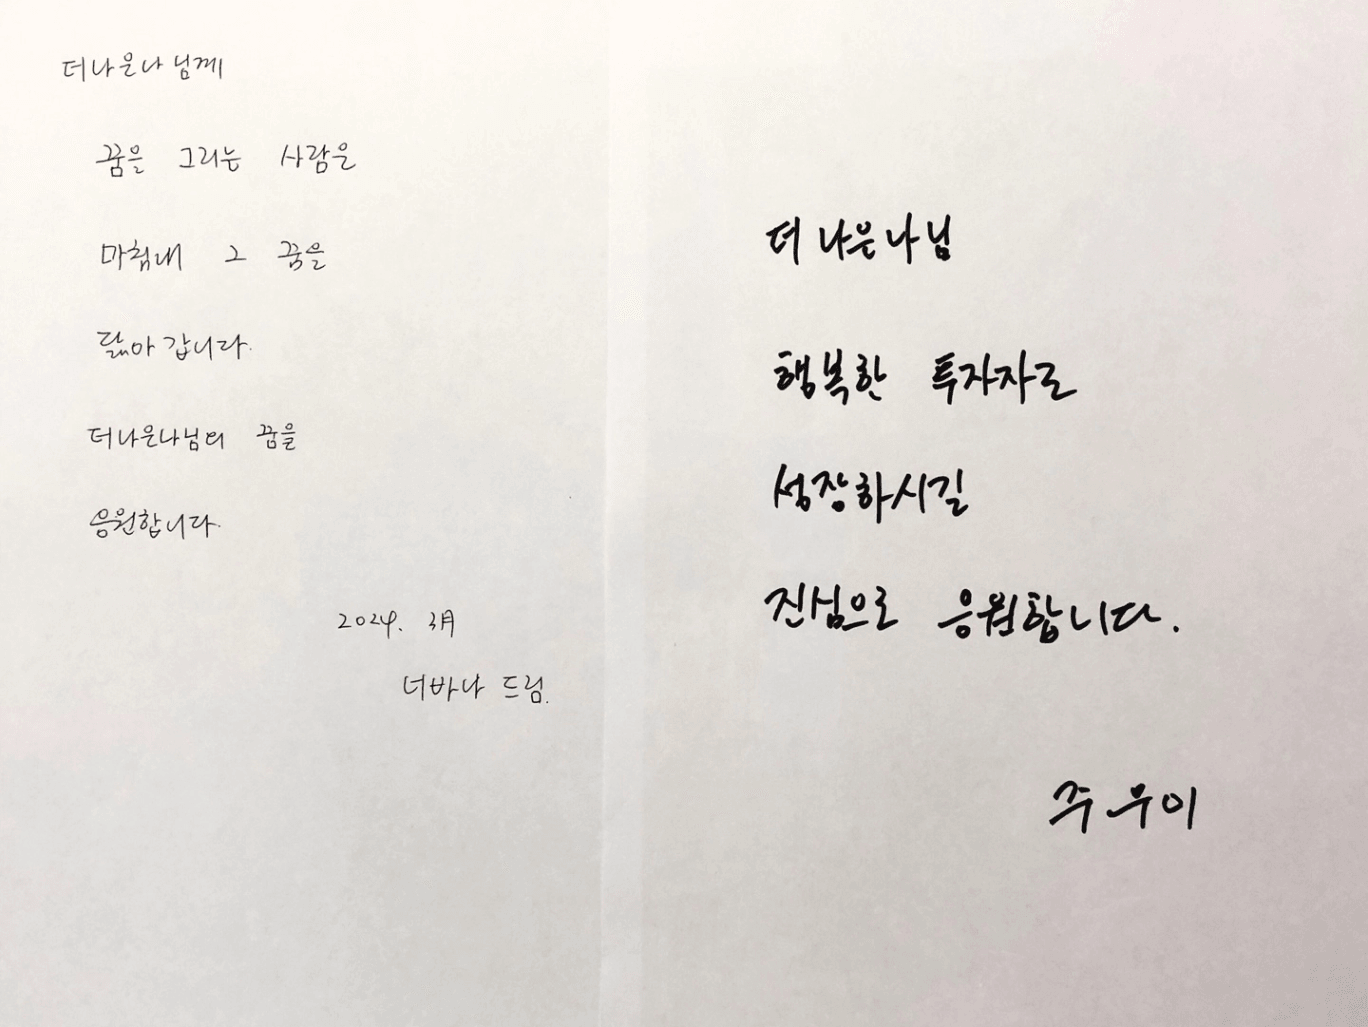 더나은나님께
꿈을 그리는 사람은
마침내 그 꿈을
닮아 갑니다.
더나은나님의 꿈을
응원합니다.
2024. 3月
너바나 드림.
더 나은나님
행복한 투자자로
성장하시길
진심으로 응원합니다.
주우이